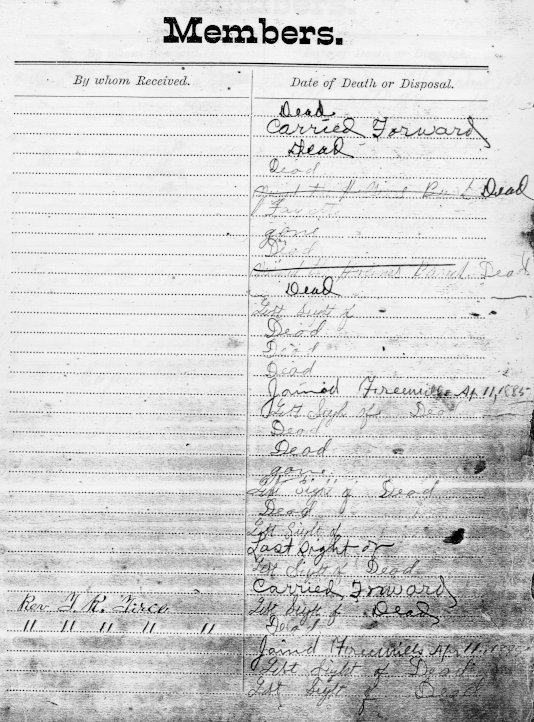 Members.
By whom Received.
Date of Death or Disposal.
Dead
Carried Forward
Dead
Dead
Dead
gone
Dead
Dead
Dead
Lost Sight of
Dead
Dead
Dead
Joined Ap. 11, 1885
Lost Sight of Dead
Dead
Dead
gone
Lost Sight of Dead
Dead
Lost Sight of
Last Sight of
Lost Sight of Dead
Carried Forward
Rev. Lost Sight of Dead
" " " " " Dead
Joind Apr 11, 1885
Lost Sight of Dead
Lost Sight of Dead